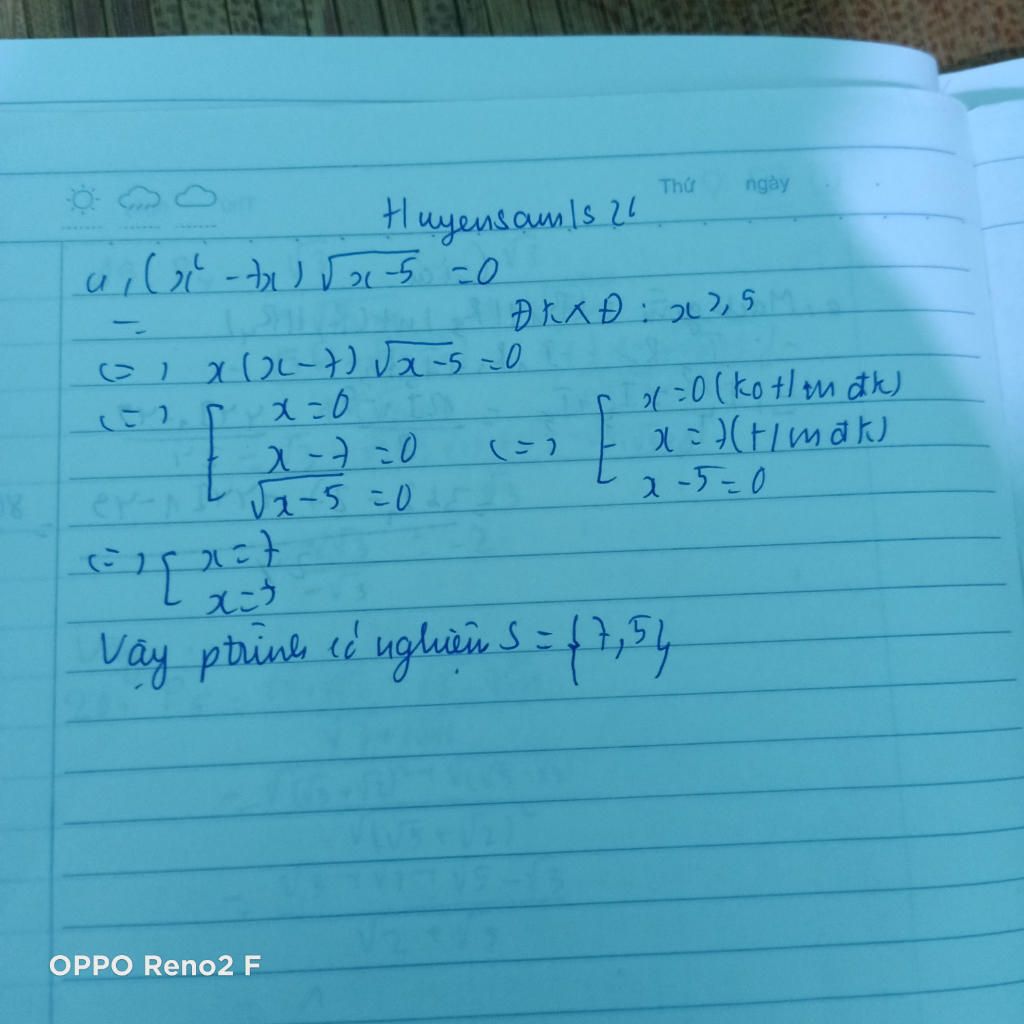 Thứ ngày
Huyensam1s26
a, (x² - 7x) √x-5 = 0
ĐKXĐ: x ≥ 5
<=> x(x-7) √x-5 = 0
<=> [ x = 0 <=> [ x = 0 (ko t/m đk)
x - 7 = 0 x = 7 (t/m đk)
√x-5 = 0 x - 5 = 0
<=> [ x = 7
x = 5
Vậy ptrình có nghiệm S = {7,5}
OPPO Reno2 F